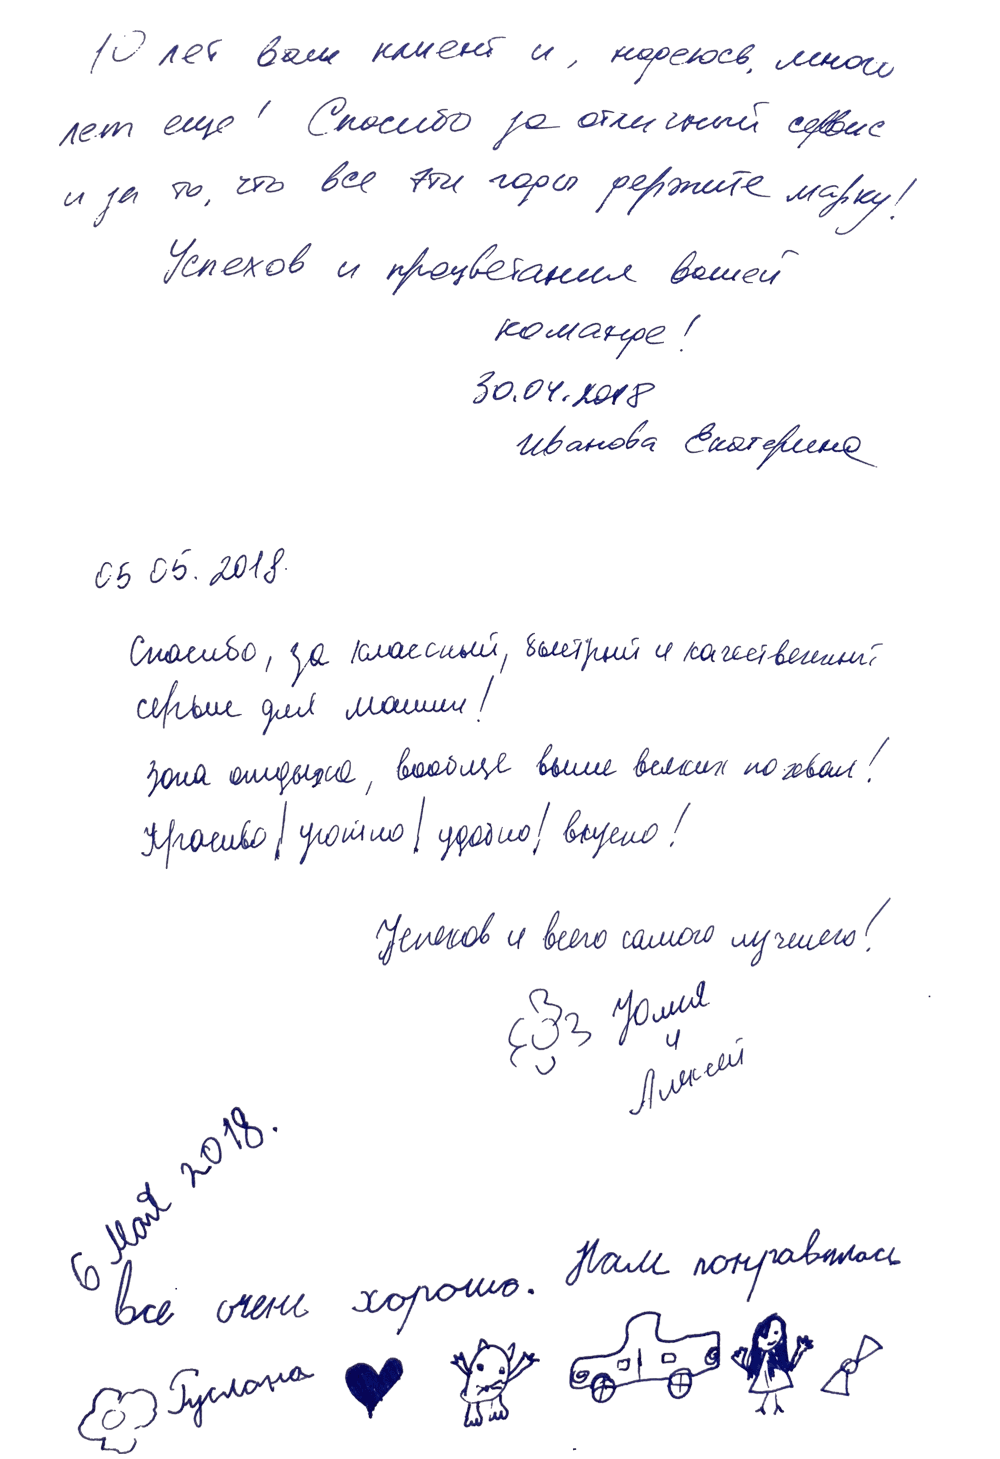 10 лет ваш клиент и, надеюсь, много
лет еще! Спасибо за отличный сервис
и за то, что все эти годы держите марку!
Успехов и процветания вашей
команде!
30.04.2018
Иванова Екатерина
05 05. 2018.
Спасибо, за классный, быстрый и качественный
сервис для машин!
Зона отдыха, вообще выше всяких похвал!
Красиво! уютно! удобно! вкусно!
Успехов и всего самого лучшего!
Юлия
и
Алексей
6 мая 2018.
Всё очень хорошо. Нам понравилось
Руслана